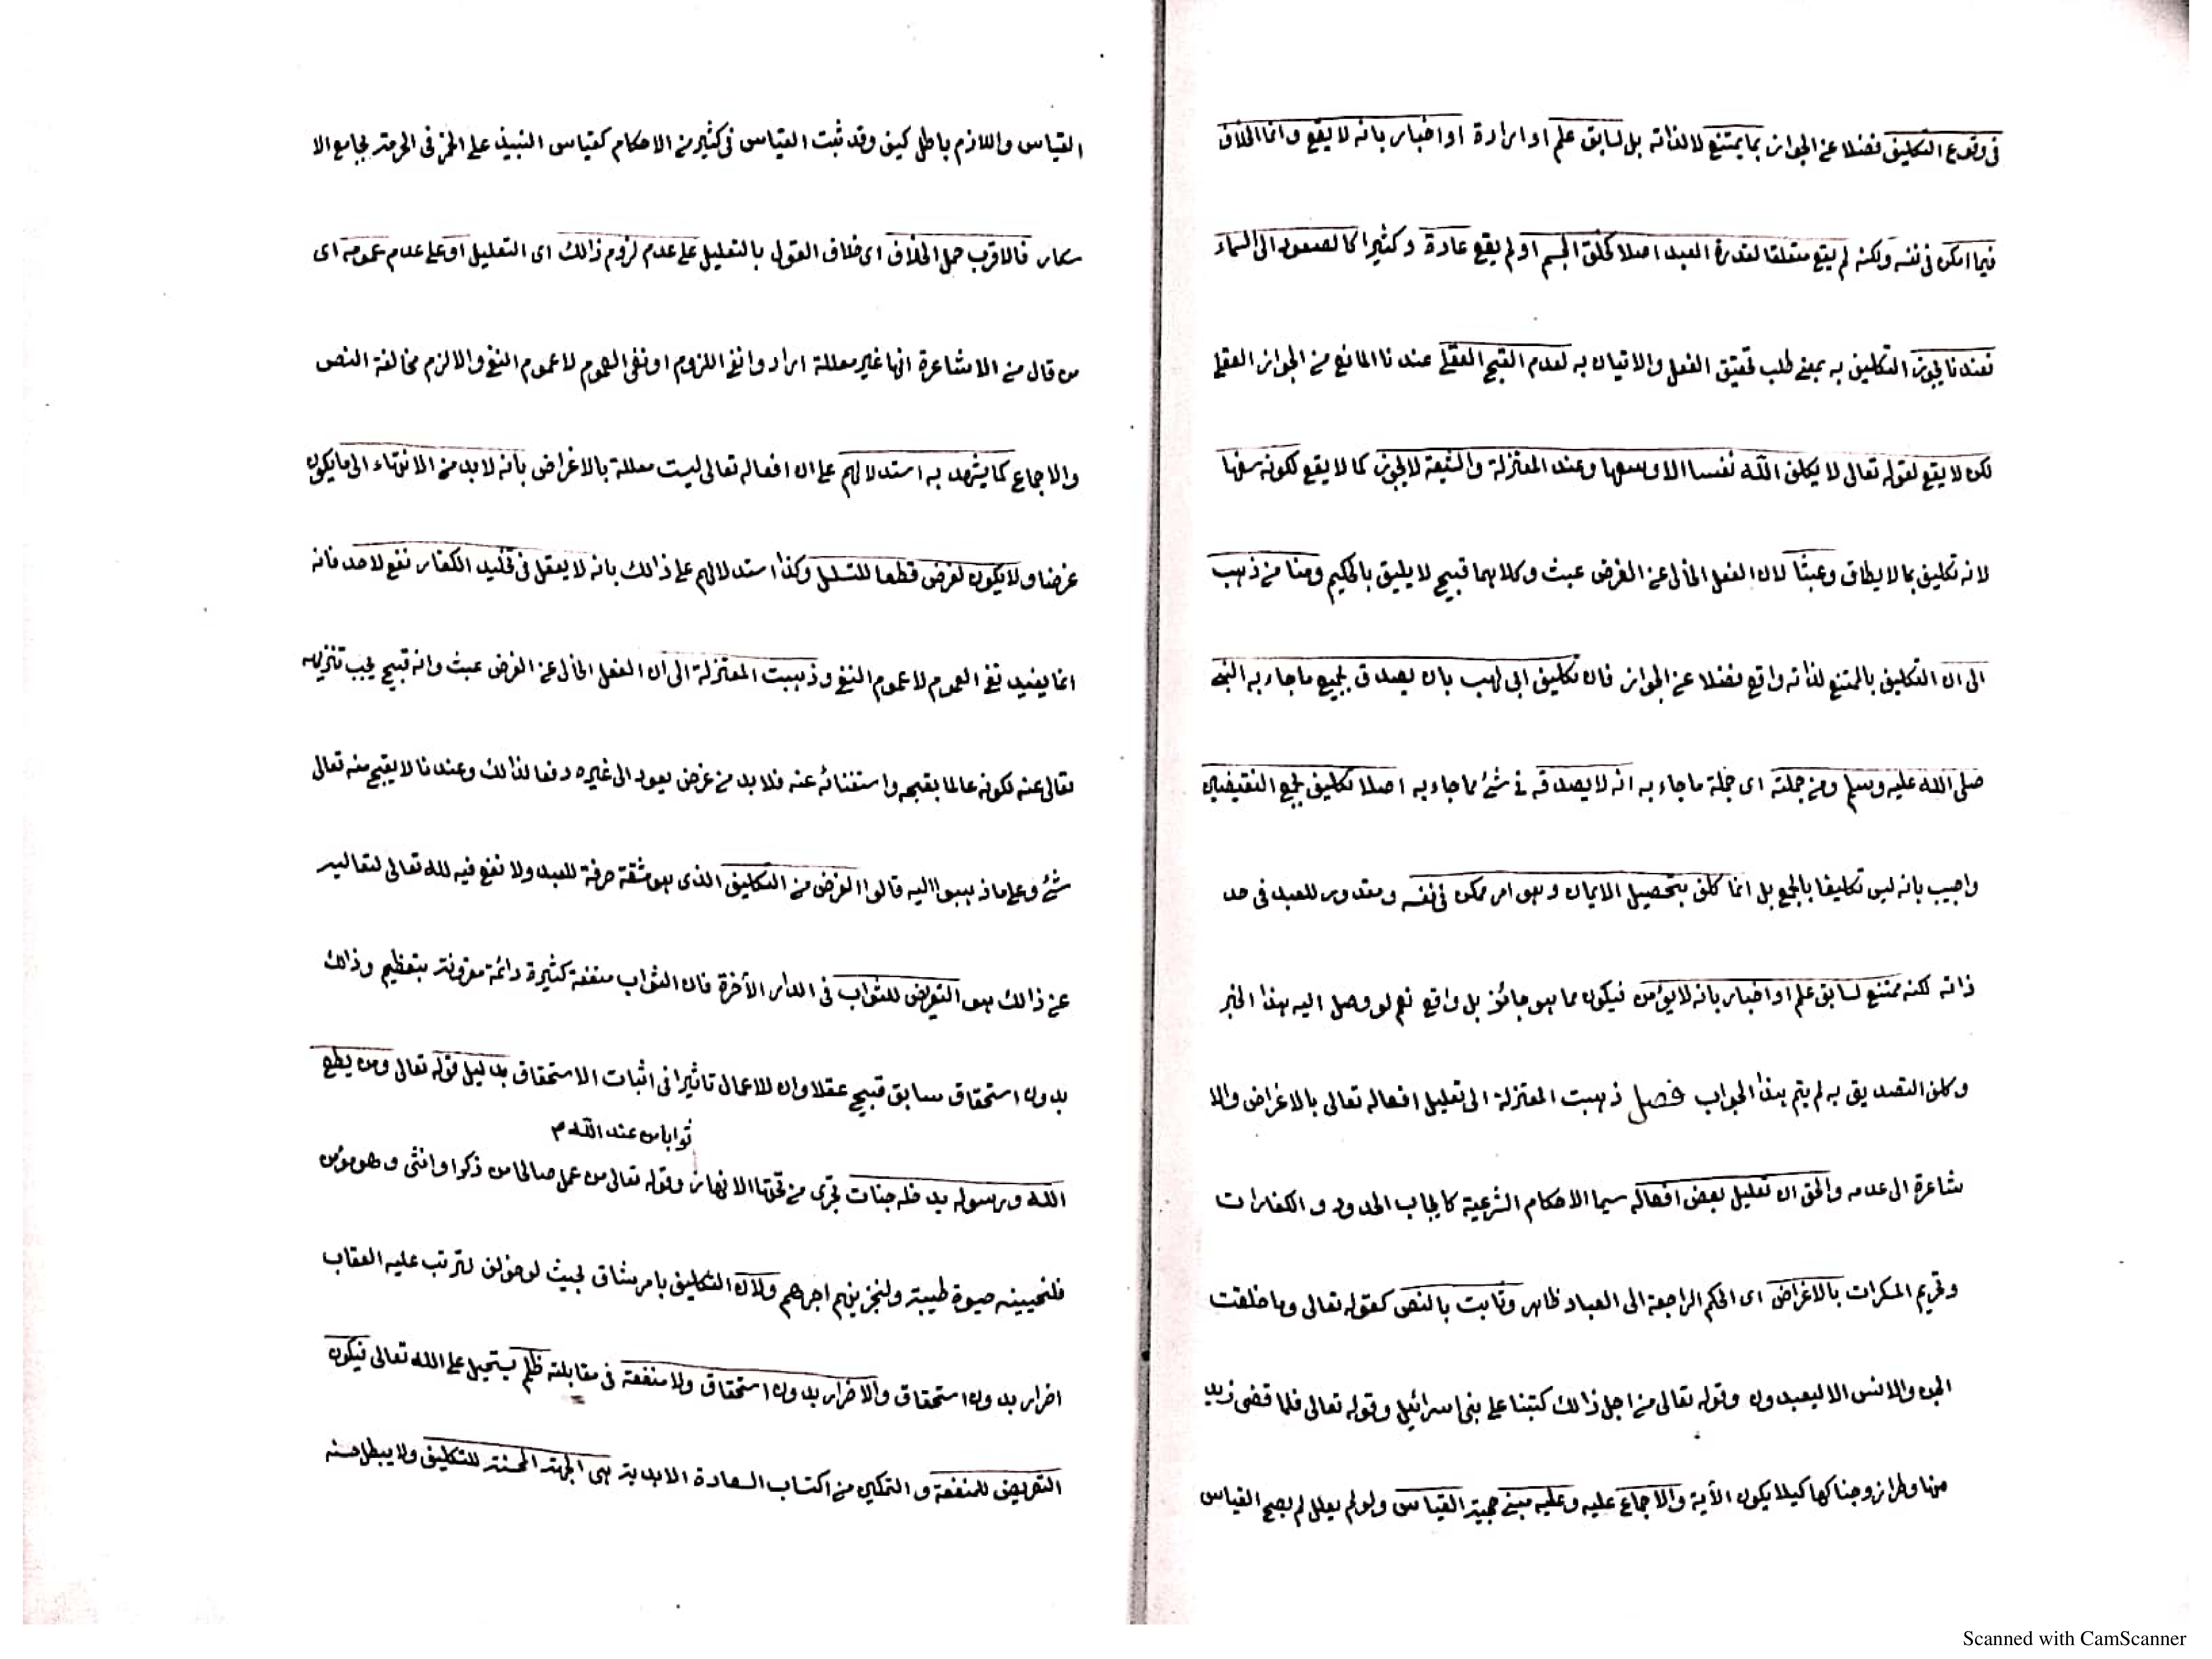 فى وقوع التكليف فضلا عن الجواز بما يمتنع لا لذاته بل لسابق علم او ارادة او اخبار بانه لا يقع وانما الخلاف
فيما امكن فى نفسه ولكنه لم يقع متعلقا لقدرة العبد اصلا كخلق الجسم او لم يقع عادة وكثيرا كالصعود الى السماء
فعندنا يجوز التكليف به بمعنے طلب تحقيق الفعل والاتيان به لعدم القبح العقلے عندنا المانع من الجواز العقلے
لكن لا يقع لقوله تعالى لا يكلف الله نفسا الا وسعها وعند المعتزلة والشيعة لا يجوز كما لا يقع لكونه سفها
لانه تكليف بما لا يطاق وعبثا لان الفعل الخالى عن الغرض عبث وكلاهما قبيح لا يليق بالحكيم ومنا من ذهب
الى ان التكليف بالممتنع لذاته واقع فضلا عن الجواز فان تكليف ابى لهب بان يصدق بجميع ما جاء به النبے
صلى الله عليه وسلم ومن جملته اى جملة ما جاء به انه لا يصدقه فى شئ مما جاء به اصلا تكليف بجمع النقيضين
واجيب بانه ليس تكليفا بالجمع بل انما كلف بتحصيل الايمان وهو امر ممكن فى نفسه ومقدور للعبد فى حد
ذاته لكنه ممتنع لسابق علم او اخبار بانه لا يؤمن فيكون مما هو جائز بل واقع نعم لو وصل اليه هذا الخبر
وكلف التصديق به لم يتم هذا الجواب فصل ذهبت المعتزلة الى تعليل افعاله تعالى بالاغراض والا
شاعرة الى عدمه والحق ان تعليل بعض افعاله سيما الاحكام الشرعية كايجاب الحدود و الكفارات
وتحريم المسكرات بالاغراض اى الحكم الراجعة الى العباد ظاهر وثابت بالنص كقوله تعالى وما خلقت
الجن والانس الا ليعبدون وقوله تعالى من اجل ذالك كتبنا على بنى اسرائيل وقوله تعالى فلما قضى زيد
منها وطرا زوجناكها كيلا يكون الآية والاجماع عليه وعليه مبنے حجية القياس ولو لم يعلل لم يصح القياس
القياس واللازم باطل كيف وقد ثبت القياس فى كثير من الاحكام كقياس النبيذ على الخمر فى الحرمة بجامع الا
سكار فالاقرب حمل الخلاف اى خلاف القول بالتعليل على عدم لزوم ذالك اى التعليل او على عدم عمومه اى
من قال من الاشاعرة انها غير معللة ارادوا نفے اللزوم او نفى العموم لا عموم النفے والا لزم مخالفة النص
والاجماع كما يشهد به استدلالهم على ان افعاله تعالى ليست معللة بالاغراض بانه لا بد من الانتهاء الى ما يكون
غرضا ولا يكون لغرض قطعا للتسلسل وكذا استدلالهم على ذالك بانه لا يعقل فى تخليد الكفار نفع لاحد فانه
انما يفيد نفے العموم لا عموم النفے وذهبت المعتزلة الى ان الفعل الخالى عن الغرض عبث وانه قبيح يجب تنزيهه
تعالى عنه لكونه عالما بقبحه واستغنائه عنه فلا بد من غرض يعود الى غيره دفعا لذالك وعندنا لا يقبح منه تعالى
شئ وعلى ما ذهبوا اليه قالوا الغرض من التكليف الذى هو مشقة صرفة للعبد ولا نفع فيه لله تعالى لتعاليه
عن ذالك هو التعريض للثواب فى الدار الآخرة فان الثواب منفعة كثيرة دائمة مقرونة بتعظيم وذالك
بدون استحقاق سابق قبيح عقلا وان للاعمال تاثيرا فى اثبات الاستحقاق بدليل قوله تعالى ومن يطع
ثوابا من عند الله م
الله ورسوله يدخله جنات تجرى من تحتها الانهار وقوله تعالى من عمل صالحا من ذكر او انثى وهو مؤمن
فلنحيينه حيوة طيبة ولنجزينهم اجرهم ولان التكليف بامر شاق بحيث لو خولف لترتب عليه العقاب
اضرار بدون استحقاق والاضرار بدون استحقاق ولا منفعة فى مقابلته ظلم يستحيل على الله تعالى فيكون
التعريض للمنفعة و التمكين من اكتساب السعادة الابدية هى الجهة المحسنة للتكليف ولا يبطل حسنه
Scanned with CamScanner